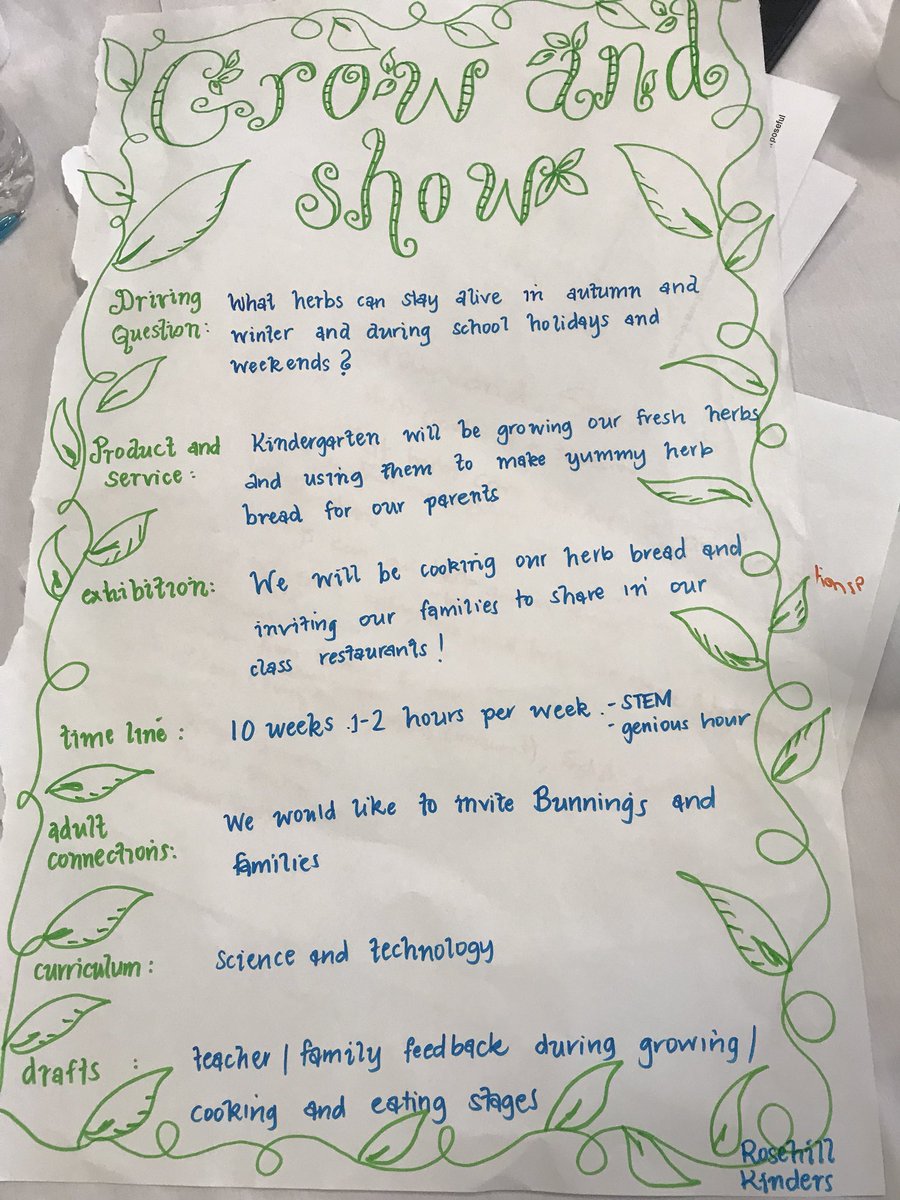 Grow and
show
Driving
Question:
What herbs can stay alive in autumn and
winter and during school holidays and
weekends?
Product and
service:
Kindergarten will be growing our fresh herbs
and using them to make yummy herb
bread for our parents
exhibition:
We will be cooking our herb bread and
inviting our families to share in our
class restaurants!
time line:
10 weeks .1-2 hours per week :- STEM
- genious hour
adult
connections:
We would like to invite Bunnings and
families
curriculum:
Science and technology
drafts :
teacher / family feedback during growing /
cooking and eating stages
Rosehill
Kinders
poseful